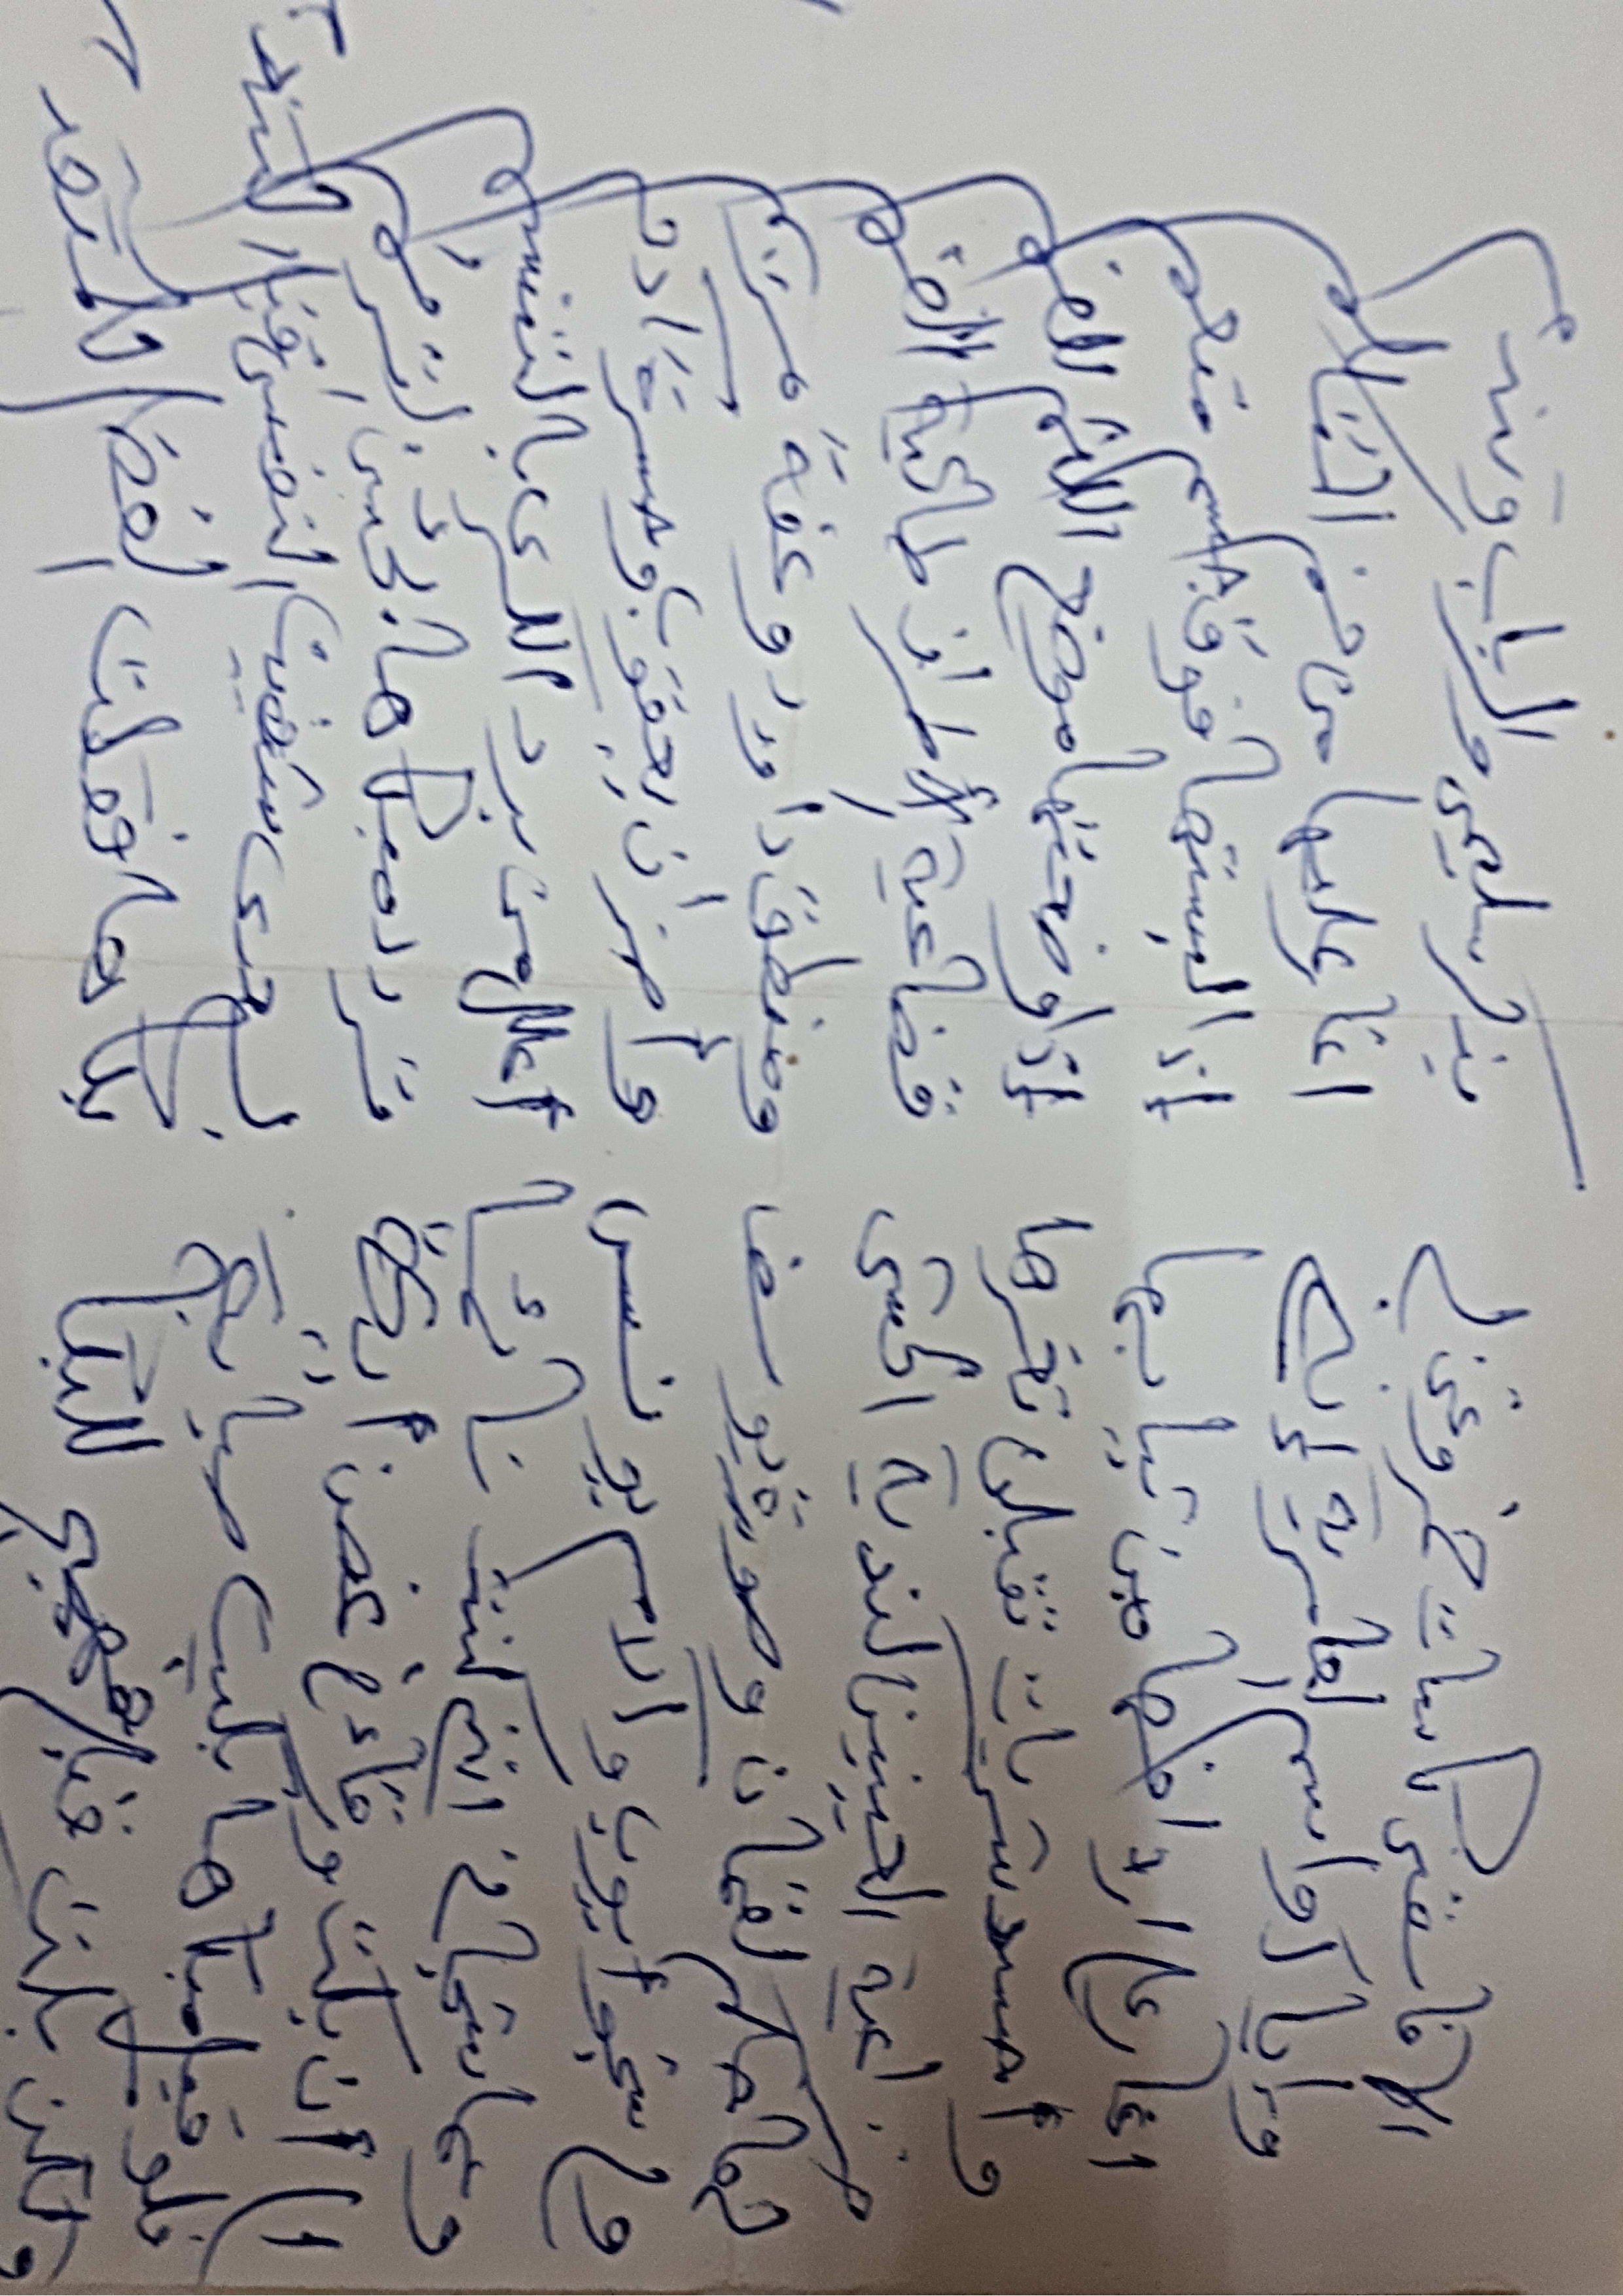 ألا فاسقني كاسات خمر وغن لي بذكر سليمى والرباب
وإياك واسم العامرية إنني اغار عليها من فم المتكلم
اغار على اعطافها من ثيابها إذا لبستها فوق جسم منعم
وأحسد تقبلن ثغرها إذا اوضعتها موضع اللثم الفم
العينين الحشى قضاعية الأطراف طائية الفم
لها حكم لقمان وصورة يوسف ومنطق داود وعفة مريم
ولي سقم أيوب يونس وأحزان يعقوب وحسرة آدم
كنت نائما أعلل من برد الكرى بالتنسم
إلى أن بكت ورقاء غصن أيكة تردد مبكاها بحسن الترنم
فلو قبل مبكاها بكيت صبابة شفيت النفس قبل التندم
ولكن بكت قبلي فهيج للبكا بكاها فقلت الفضل للمتقدم